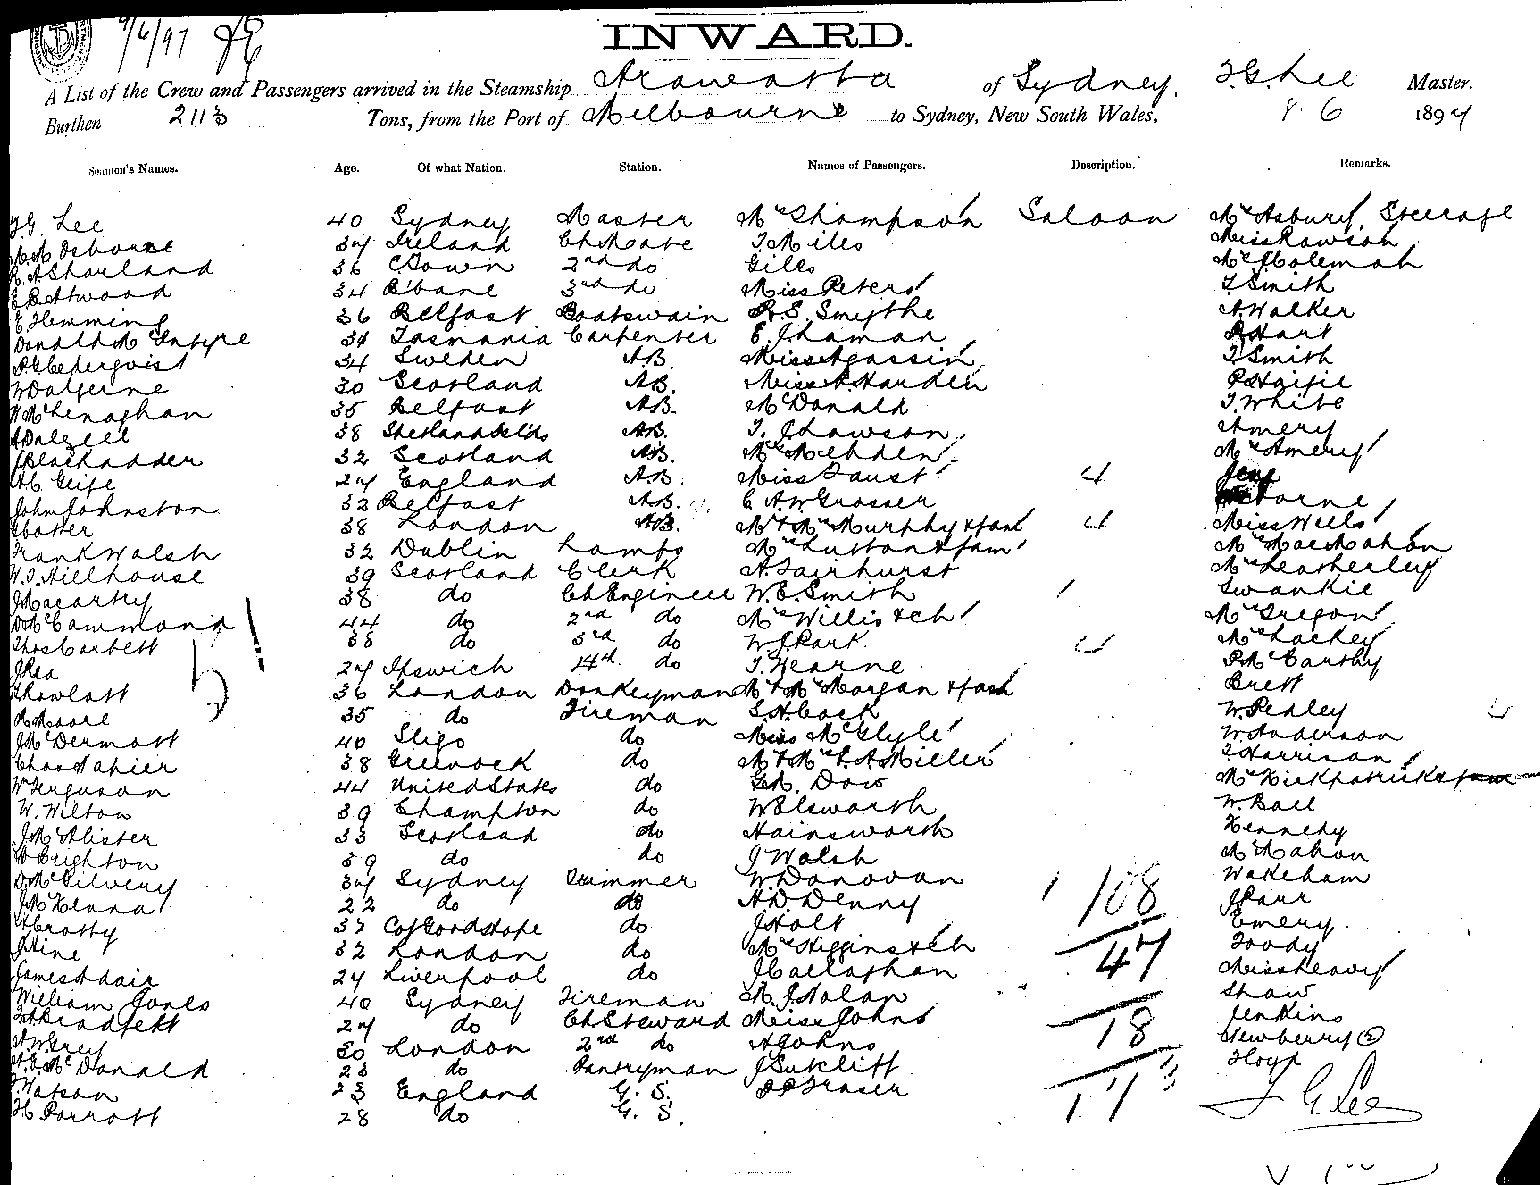 9/6/97
INWARD.
A List of the Crew and Passengers arrived in the Steamship Arawatta of Sydney, T. G. Lee Master.
Burthen 2113 Tons, from the Port of Melbourne to Sydney, New South Wales, 8.6 1897
Seamen's Names. Age. Of what Nation. Station. Names of Passengers. Description. Remarks.
T G Lee 40 Sydney Master Mrs Thompson Saloon Mrs Asbury Steerage
Osborne 37 Ireland Ch Mate T. Miles Miss Rawson
R. A Sharland 36 C. Town 2nd do Giles Mrs Coleman
E B Atwood 34 B'bane 3rd do Miss Peters T Smith
E Hemming 36 Belfast Boatswain P. S. Smythe A Walker
Donald McIntyre 31 Tasmania Carpenter E. Jhaman P Hart
Cederqvist 34 Sweden A.B. Miss Agassin T Smith
W Dalgerne 30 Scotland AB. Miss A. Harden
McLenaghan 35 Belfast AB. McDonald T. White
A Dalzell 38 Shetland Islds AB. T. J Lawson Amery
J Blackadder 32 Scotland AB. Mrs Mehden Mrs Amery
27 England A.B. Miss Faust 4
John Johnston 32 Belfast A.B. C A W Grosser Horne
38 London AB. Mr & Mrs Murphy & fam 4 Miss Wells
Frank Walsh 32 Dublin Lamps Mrs Lutton & fam Mrs MacMahon
W. J. Hillhouse 39 Scotland Clerk A. Fairhurst Mrs Leatherley
J Macarthy 38 do Ch Engineer W. E. Smith 1 Swankie
D McCammond 44 do 2nd do Mrs Willis & ch Mrs Gregor
Thos Corbett 38 do 3rd do W J Park Mrs Lackey
J Rea 27 Ipswich 4th do T. Hearne P McCarthy
Rowlatt 36 London Donkeyman Mr & Mrs Morgan & fam Brett
Moore 35 do Fireman S. H. Cock W. Pedley
J McDermott 40 Sligo do Miss McGlyle W Anderson
Chas Napier 38 Greenock do Mr & Mrs T. A Miller Harrison
Wm Ferguson 44 United States do G M. Dow Mrs Kirkpatrick & fam
W. Wilton 39 Champton do W Elsworth W. Ball
J McAlister 33 Scotland do Hainsworth Kennedy
Crighton 39 do do J Walsh McMahon
D. McGilvery 37 Sydney Trimmer W Donovan 1 108 Wakeham
J McKenna 22 do do H D Denny J Parr
H Crotty 32 C of Good Hope do J Holt Emery
J Hine 32 London do Mrs Higgins & ch 47 Foody
James Adair 24 Liverpool do J Callaghan Miss Heavey
William Jones 40 Sydney Fireman M. J Nolan Shaw
27 do Ch Steward Miss Johns 18 Jenkins
30 London 2nd do A Johns Newberry (2)
McDonald 23 do Pantryman J Sutcliff Floyd
Watson 23 England G. S. Fraser 17
H Parrott 28 do G. S. T G Lee